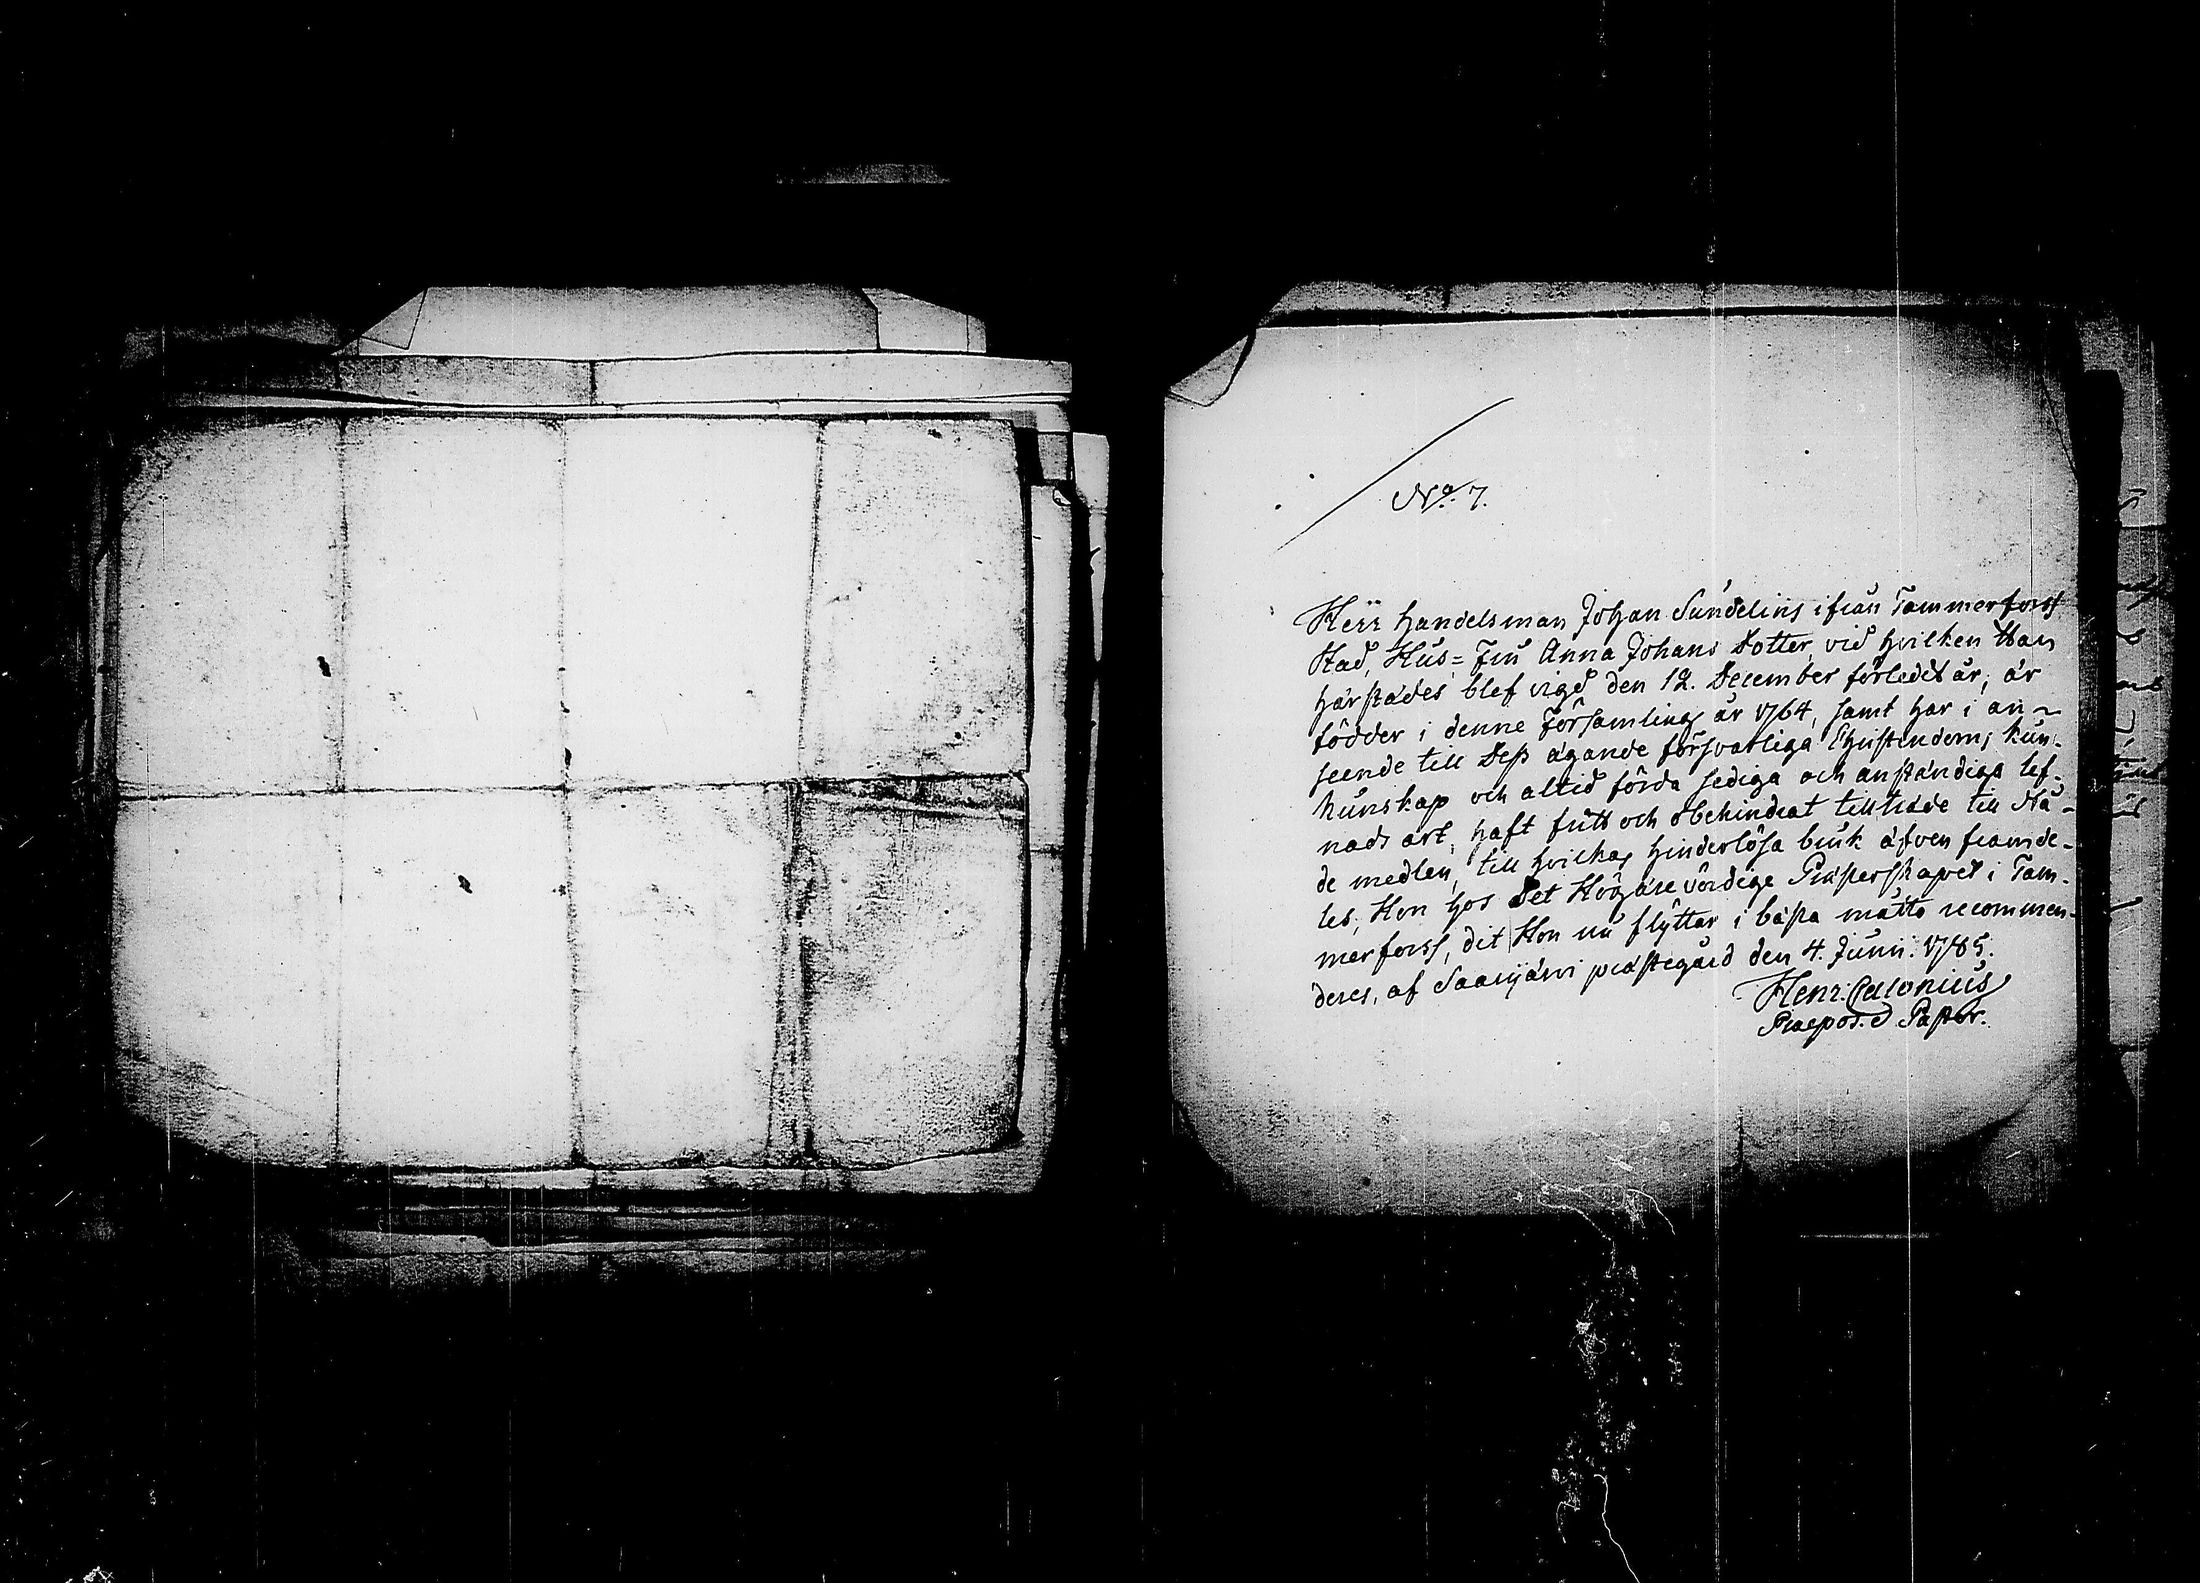 No. 7.
Herr Handelsman Johan Sundelins ifrån Tammerforss
Stad, Hus=Fru Anna Johans Dotter, vid hvilken Han
härstädes blef vigd den 12. December förledit år, är
födder i denne Församling år 1764, samt har i an-
seende till Dess ägande försvarliga Christendoms kun-
kunskap och altid förda sediga och anständiga lef-
nads art, haft fritt och obehindrat tillträde till Nå-
de medlen, till hvilkas hinderlösa bruk äfven framde-
les, Hon hos Det Högärevördige Prästerskapet i Tam-
merforss, dit Hon nu flyttar i bästa måtto recommen-
deres, af Saarijärvi prästegård den 4. Junii. 1785.
Henr. Calonius
Praepos. et Pastor.